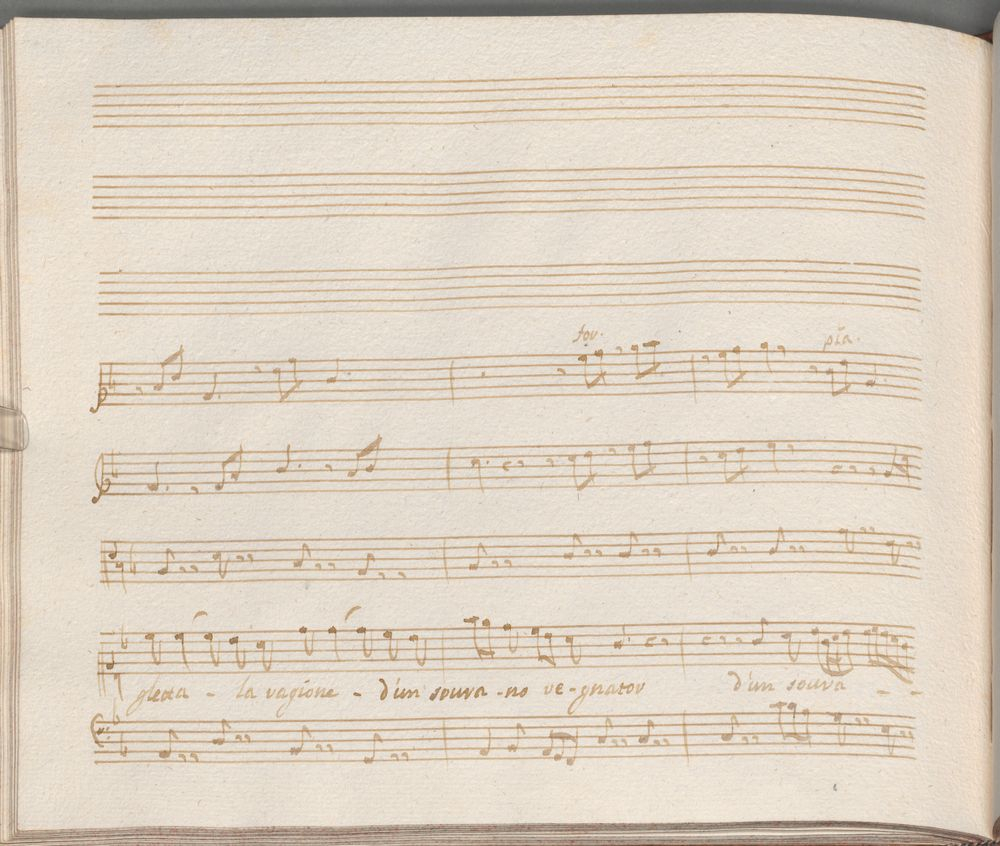 for. pia.
glieta - la ragione - d'un sovra - no re - gnator d'un sovra - -